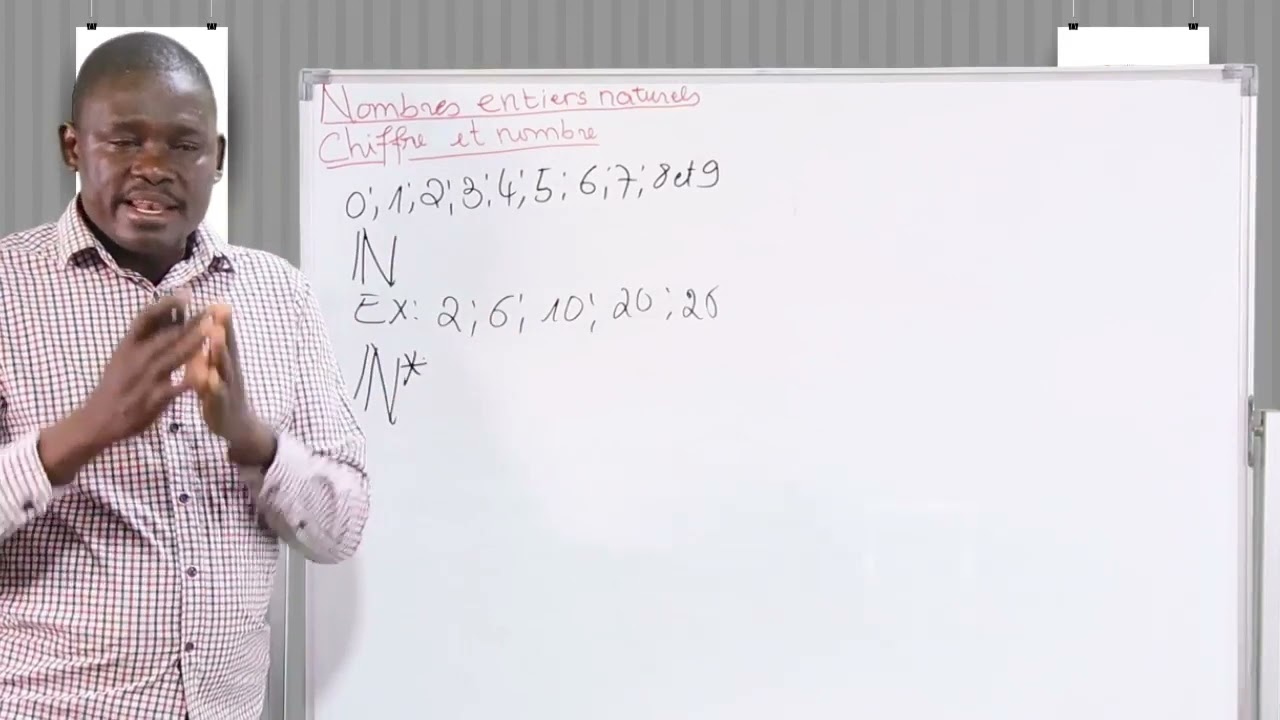 Nombres entiers naturels
Chiffre et nombre
0; 1; 2; 3; 4; 5; 6; 7; 8 et 9
ℕ
Ex: 2; 6; 10; 20; 26
ℕ*